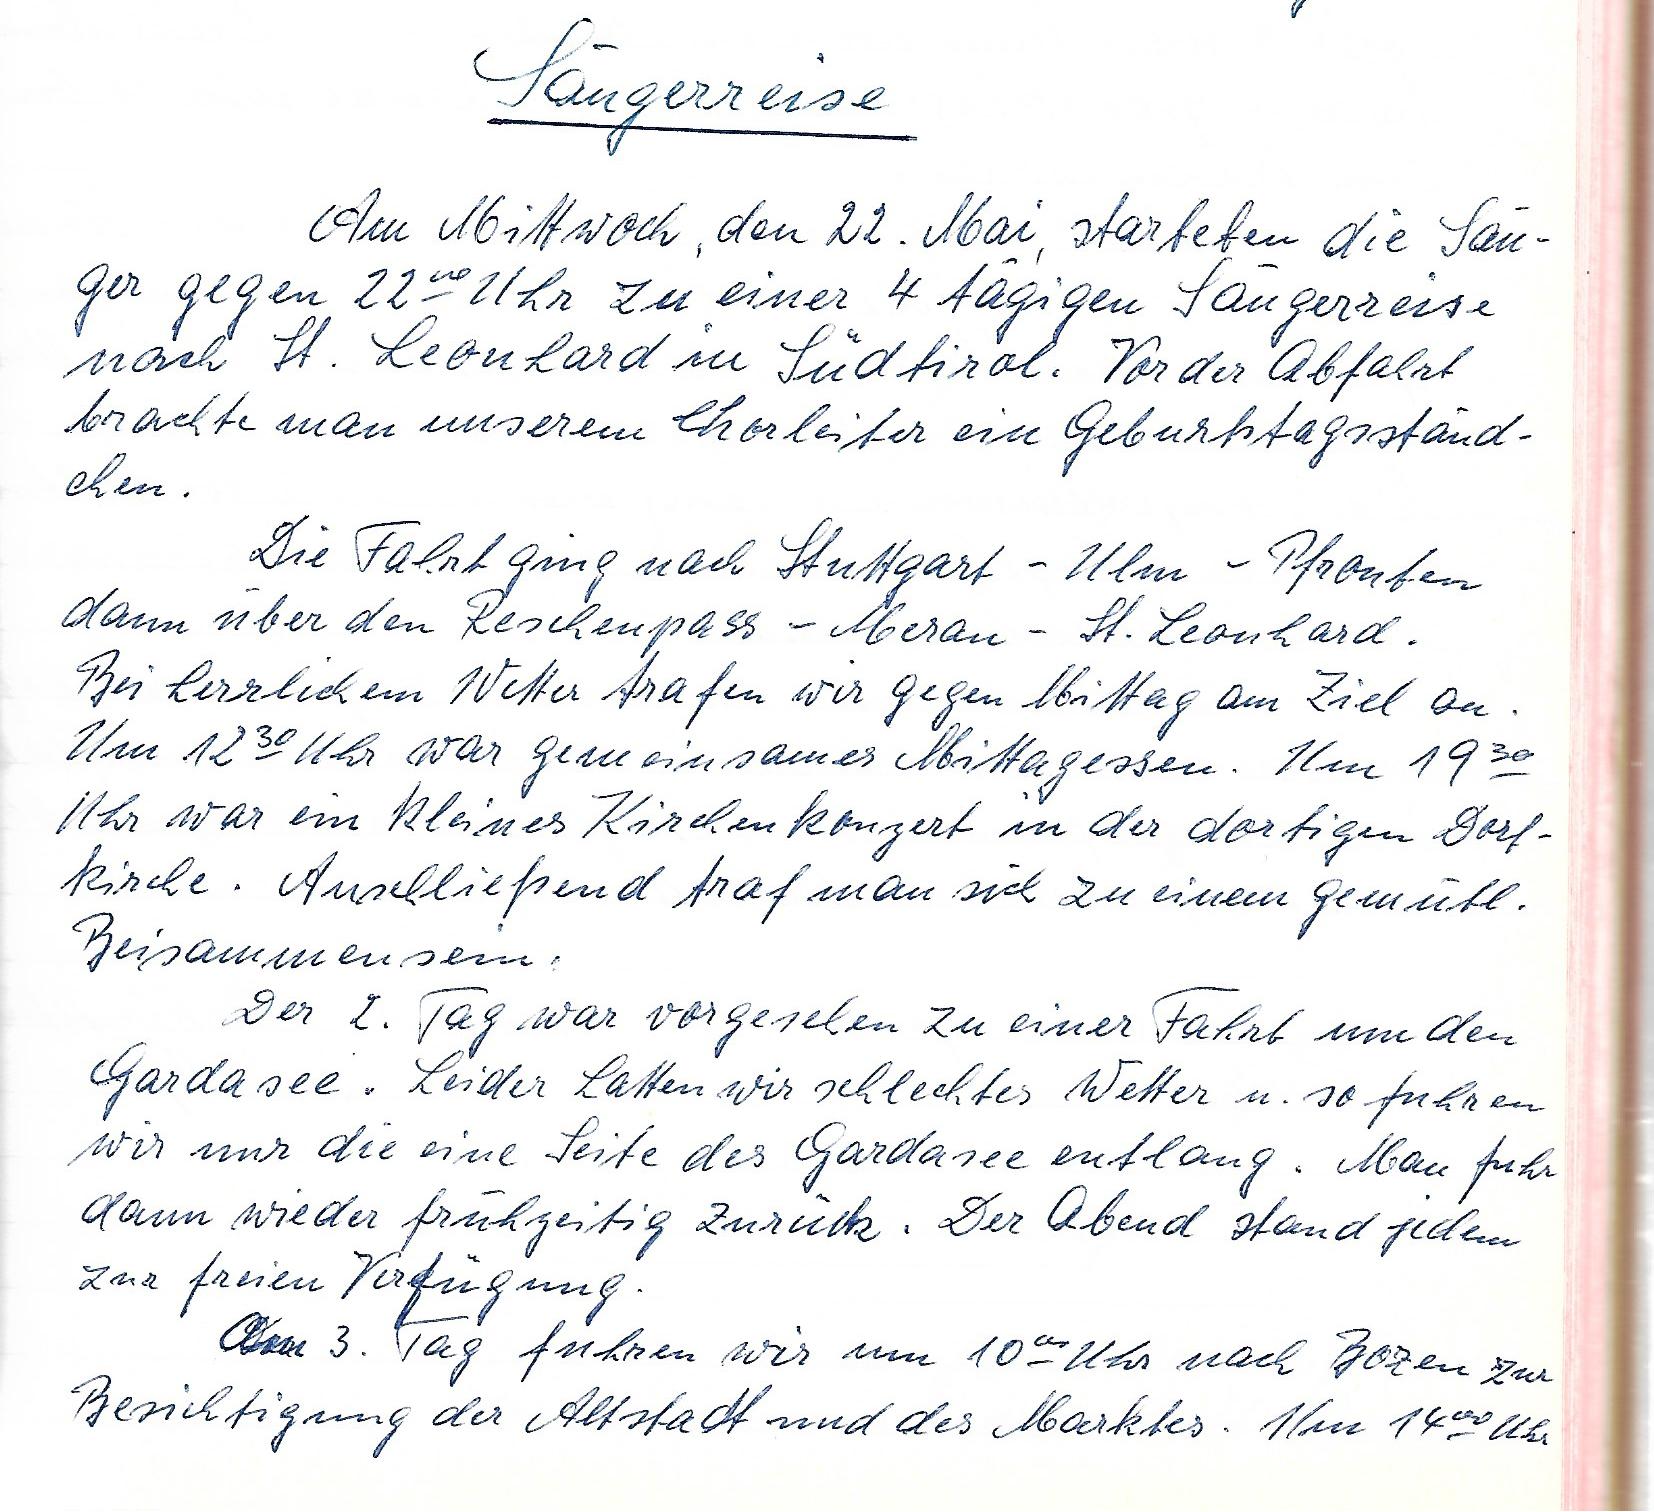 Sängerreise
Am Mittwoch, den 22. Mai, starteten die Sän-
ger gegen 22⁰⁰ Uhr zu einer 4 tägigen Sängerreise
nach St. Leonhard in Südtirol. Vor der Abfahrt
brachte man unserem Chorleiter ein Geburtstagsständ-
chen.
Die Fahrt ging nach Stuttgart - Ulm - Pfronten
dann über den Reschenpass - Meran - St. Leonhard.
Bei herrlichem Wetter trafen wir gegen Mittag am Ziel an.
Um 12³⁰ Uhr war gemeinsames Mittagessen. Um 19³⁰
Uhr war ein kleines Kirchenkonzert in der dortigen Dorf-
kirche. Anschließend traf man sich zu einem gemütl.
Beisammensein.
Der 2. Tag war vorgesehen zu einer Fahrt um den
Gardasee. Leider hatten wir schlechtes Wetter u. so fuhren
wir nur die eine Seite des Gardasee entlang. Man fuhr
dann wieder frühzeitig zurück. Der Abend stand jedem
zur freien Verfügung.
Am 3. Tag fuhren wir um 10⁰⁰ Uhr nach Bozen zur
Besichtigung der Altstadt und des Marktes. Um 14⁰⁰ Uhr